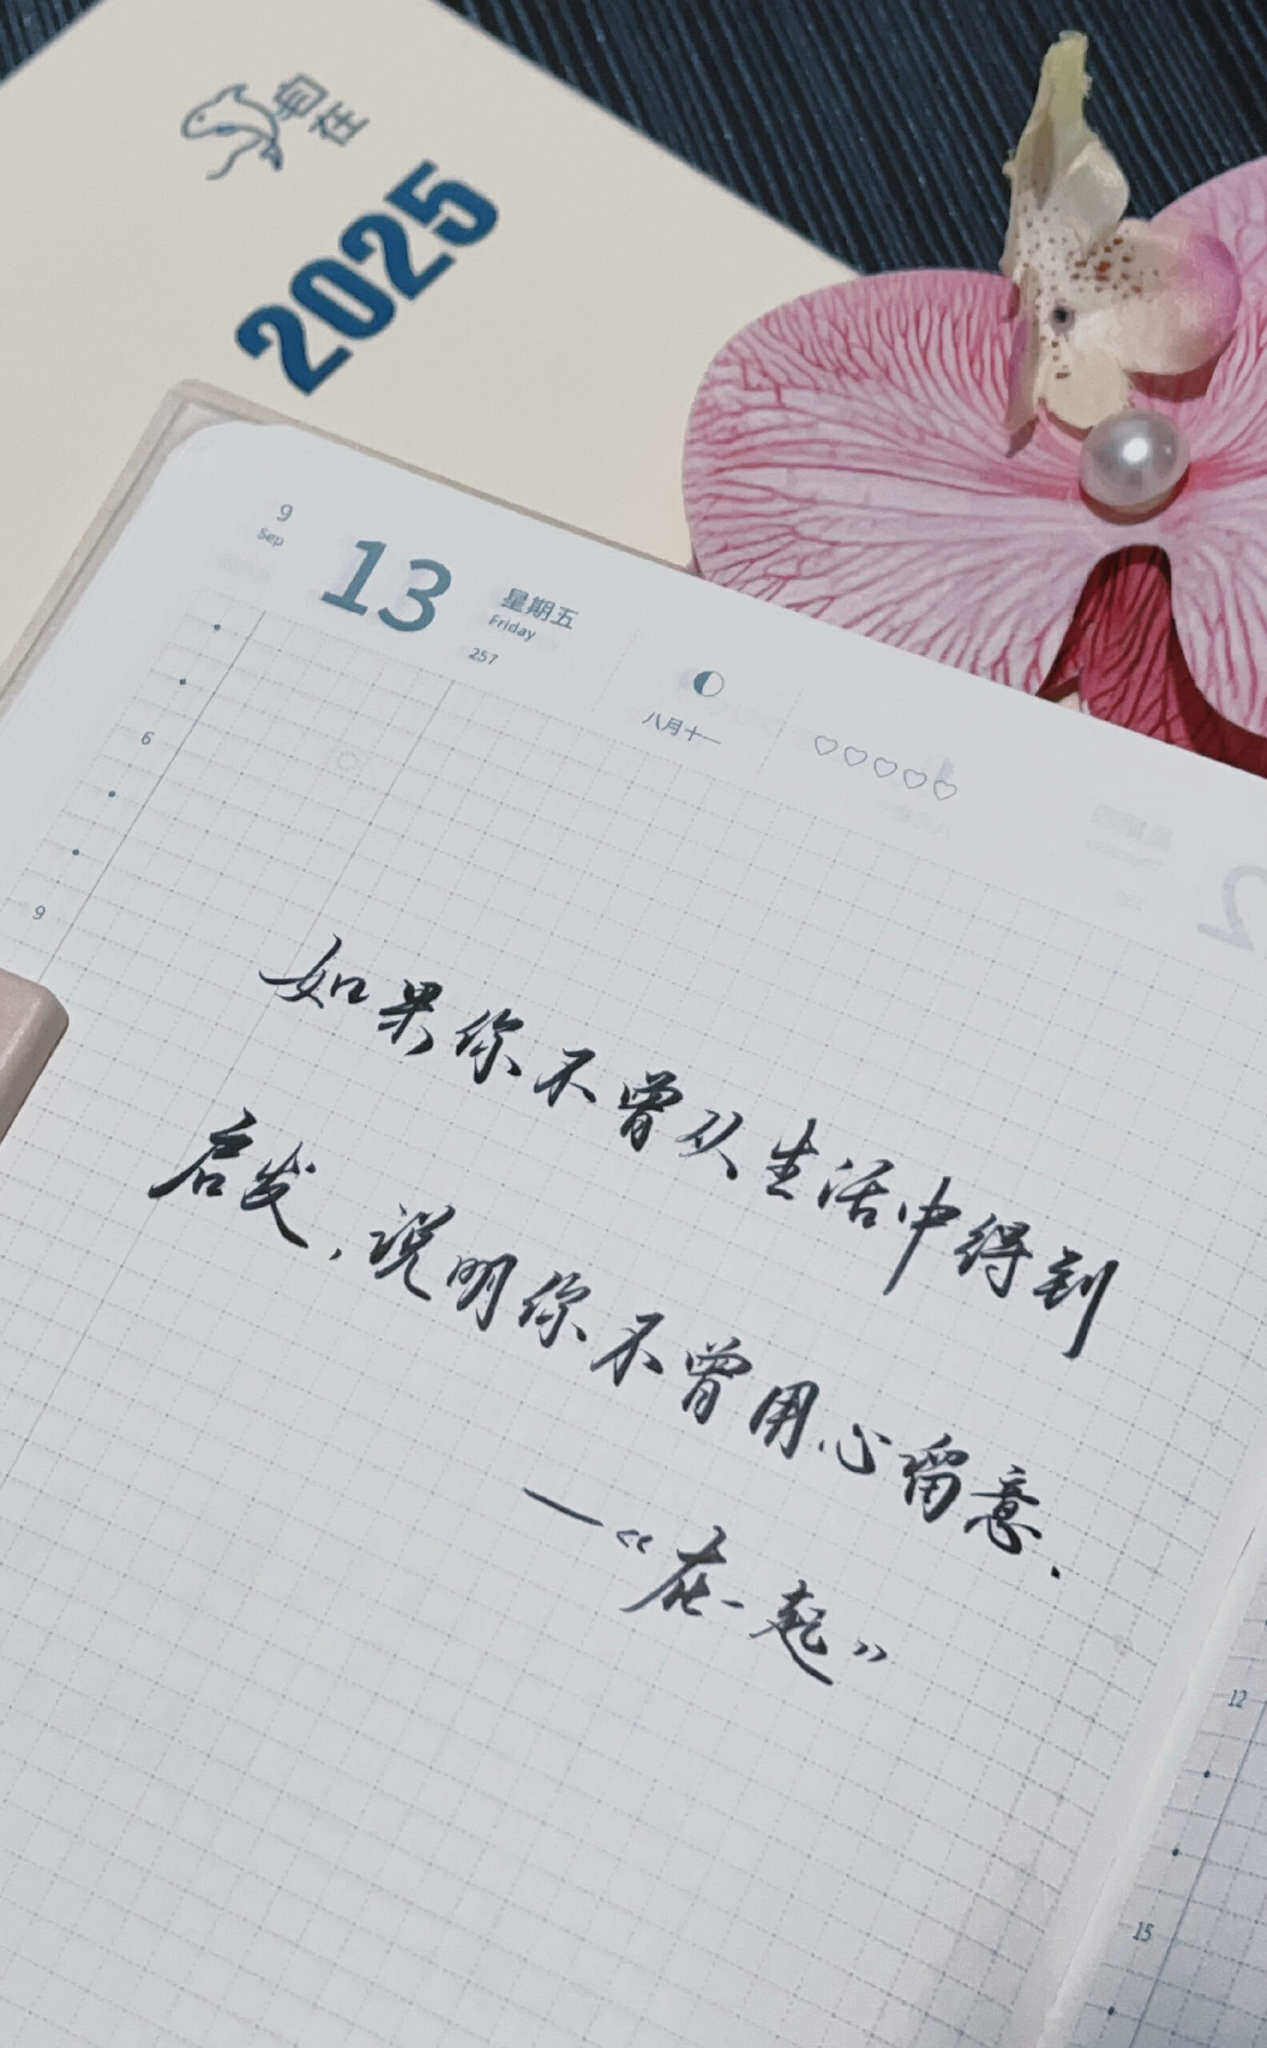 自在
2025
9
Sep
13
星期五
Friday
257
八月十一
6
9
如果你不曾从生活中得到
启发，说明你不曾用心留意.
—《在一起》
12
15